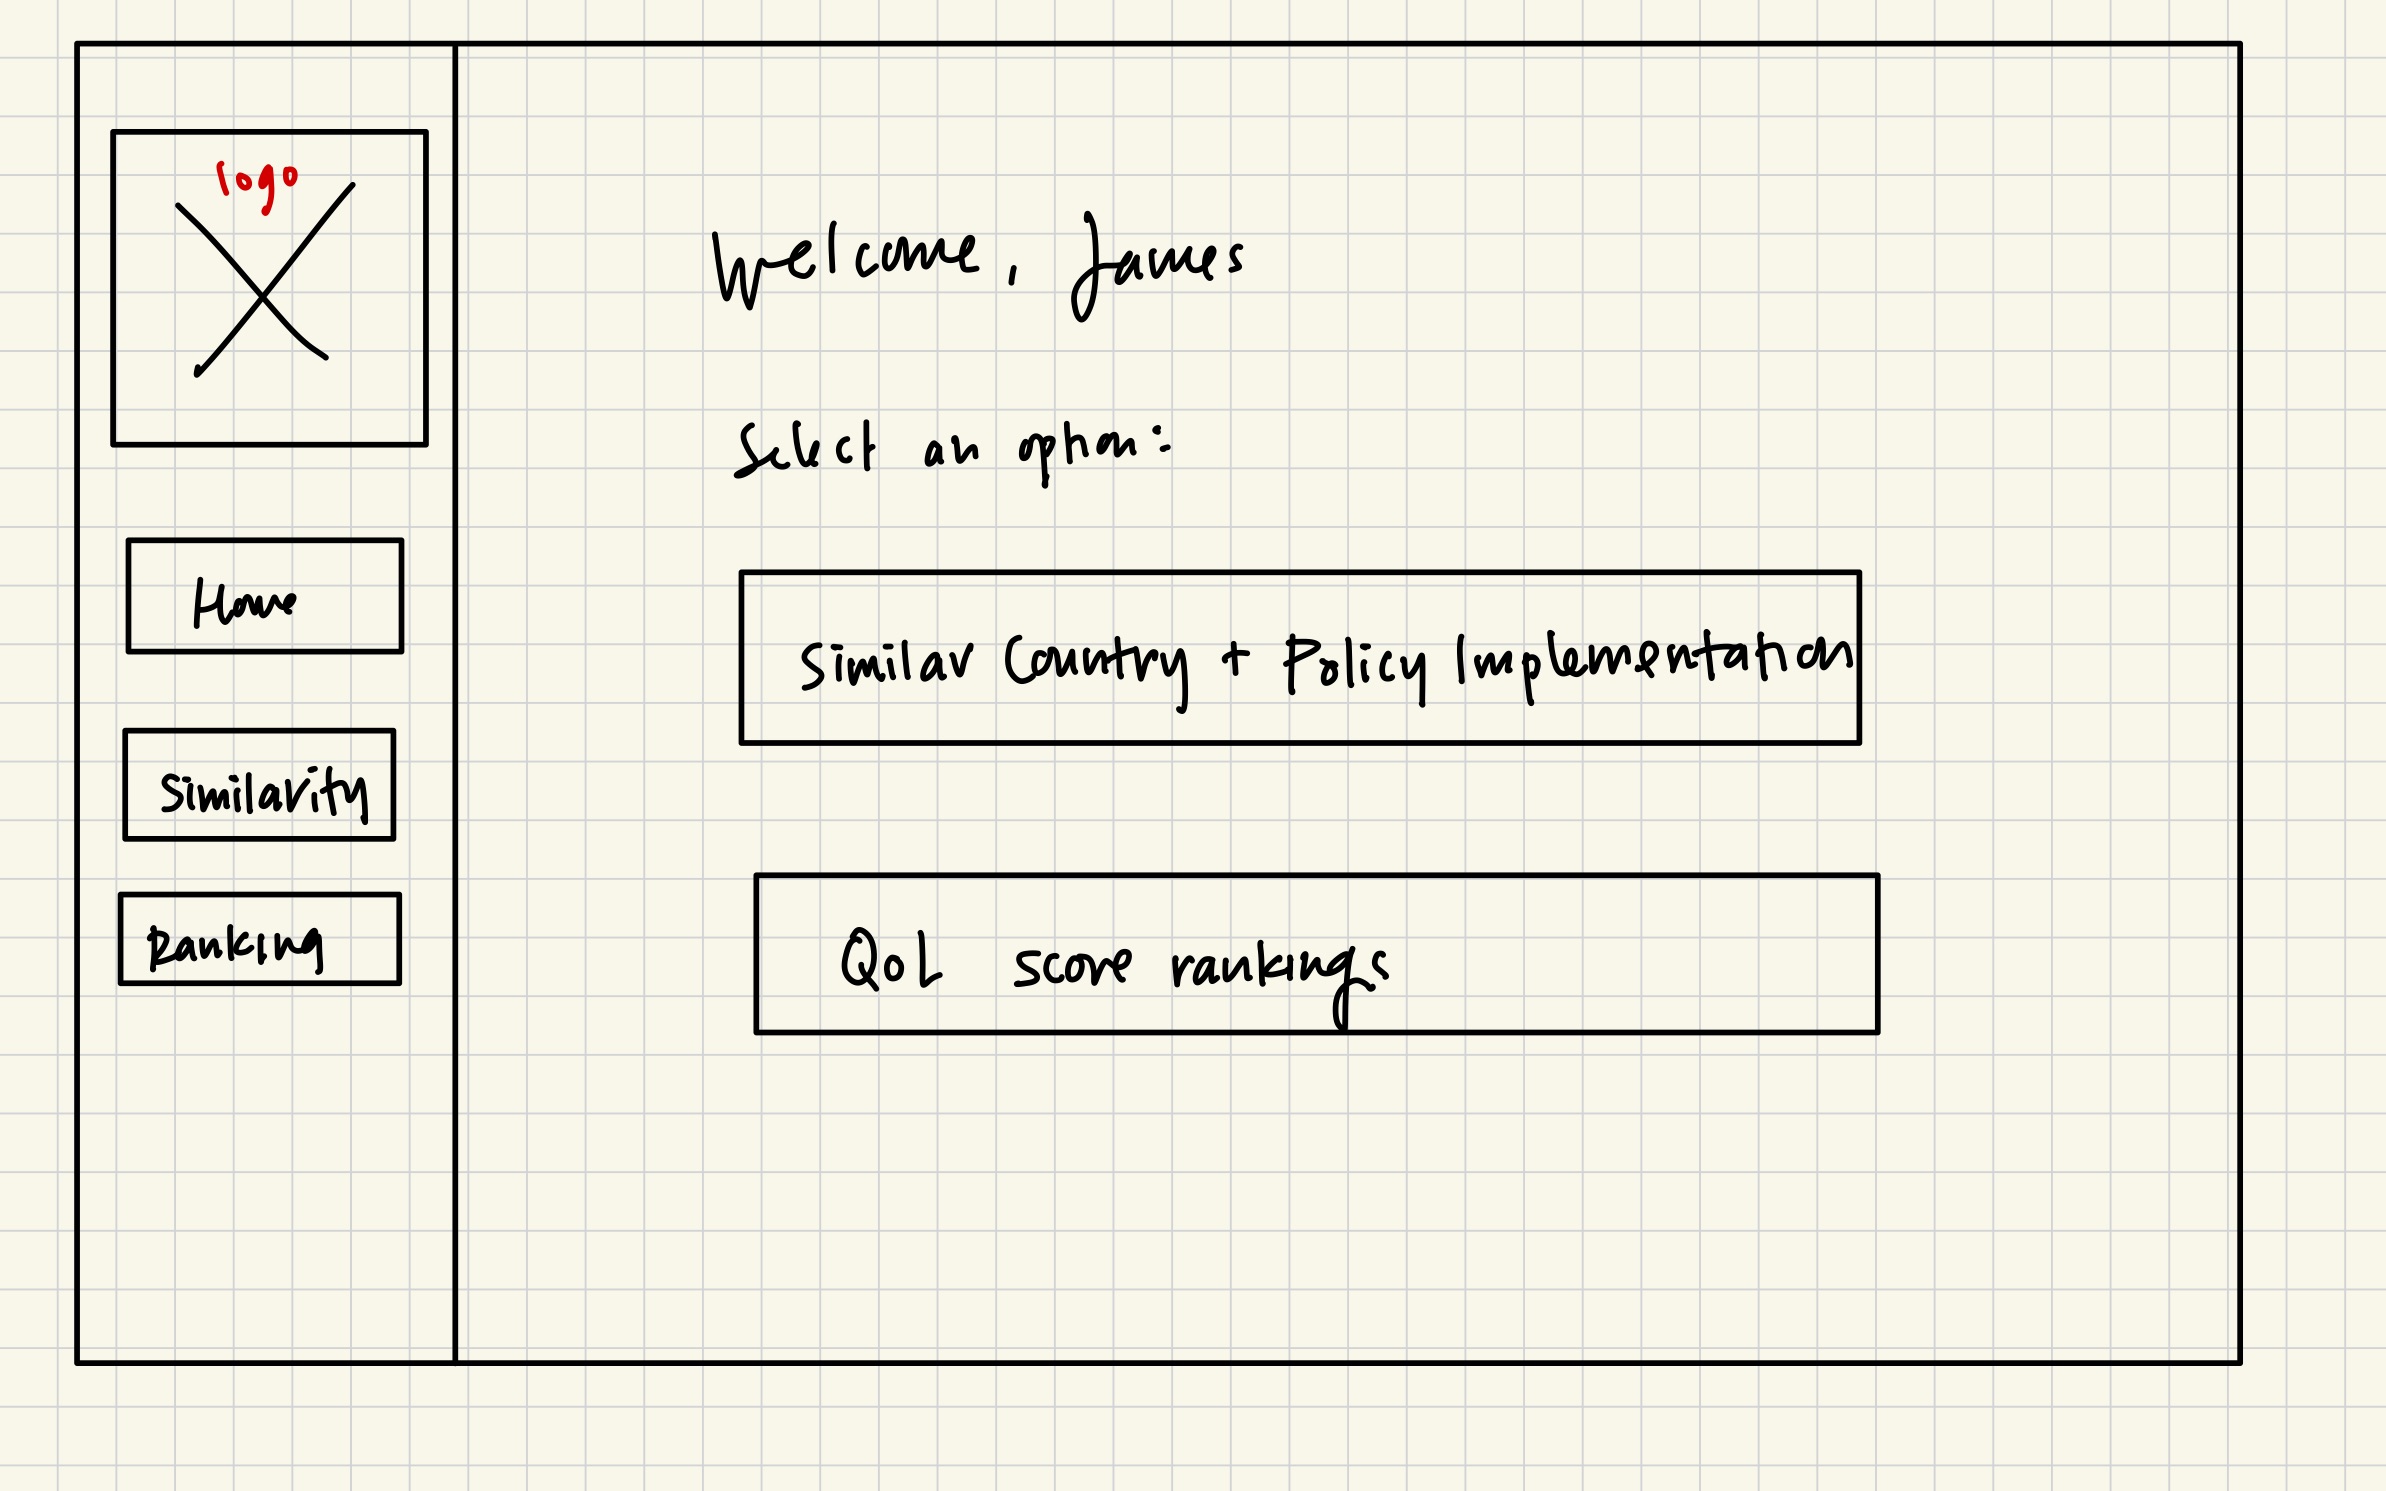 logo
Home
Similarity
Ranking
Welcome, James
Select an option:
Similar Country + Policy Implementation
QoL score rankings